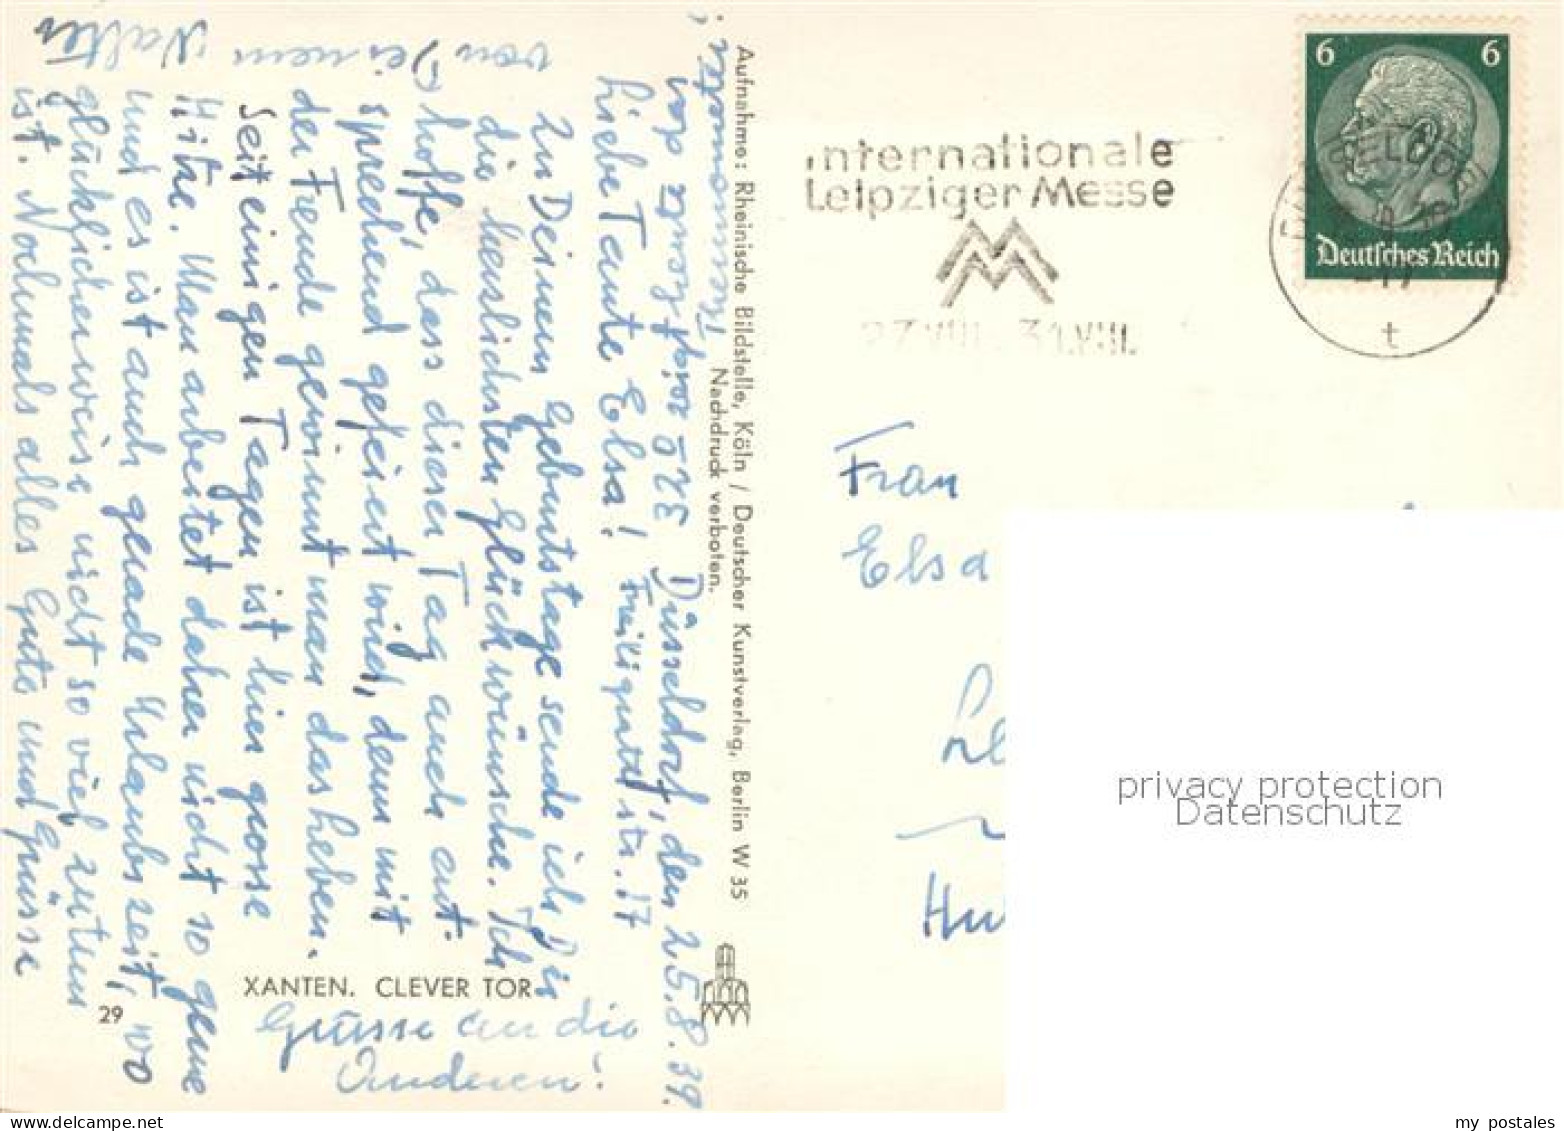 Düsseldorf, den 25.8.39.
Liebe Tante Elsa! Freiligrathstr. 17
Zu Deinem Geburtstage sende ich Dir
die herzlichsten Glückwünsche. Ich
hoffe, dass dieser Tag auch ent-
sprechend gefeiert wird, denn mit
der Freude gewinnt man das Leben.
Seit einigen Tagen ist hier grosse
Hitze. Man arbeitet daher nicht so gerne
und es ist auch gerade Urlaubszeit, wo
glücklicherweise nicht so viel zu tun
ist. Nochmals alles Gute und Grüsse
von Deinem Walter
Grüsse an die
Anderen!
Aufnahme: Rheinische Bildstelle, Köln / Deutscher Kunstverlag, Berlin W 35
Nachdruck verboten.
XANTEN. CLEVER TOR
29
Internationale
Leipziger Messe
27.VIII. 31.VIII.
6 6
Deutsches Reich
t
Frau
Elsa
privacy protection
Datenschutz
my postales